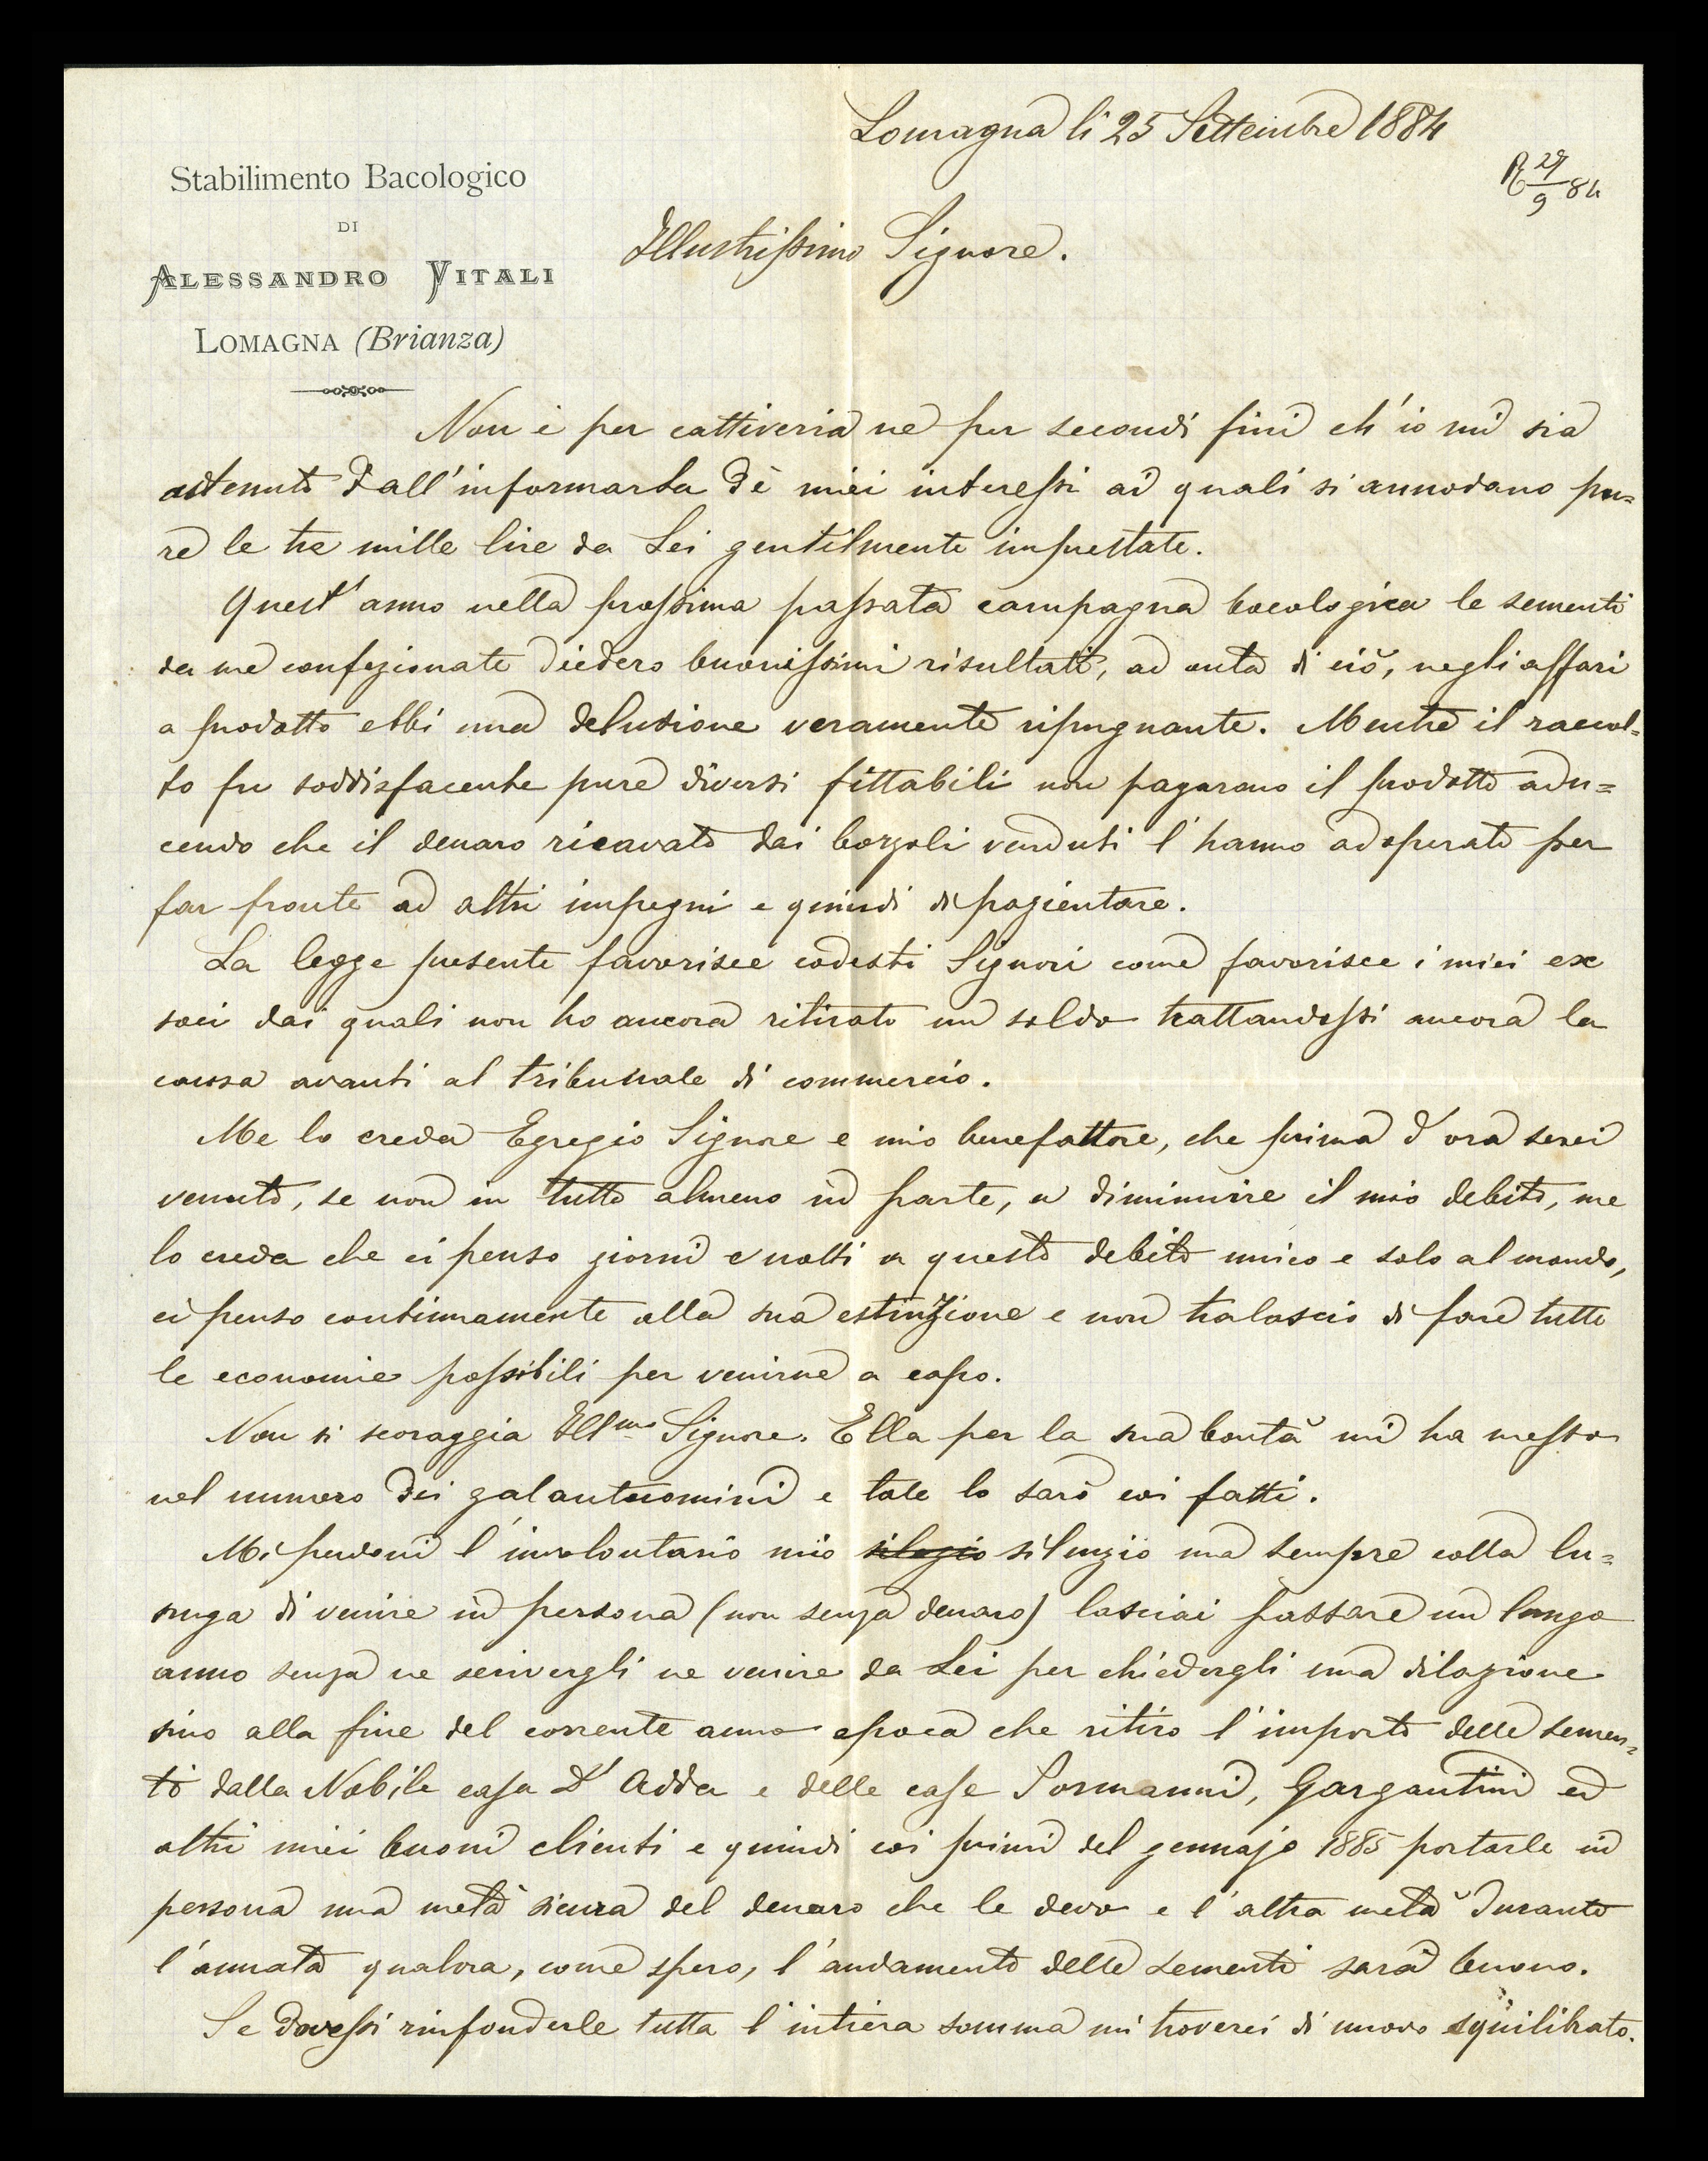 Lomagna li 25 Settembre 1884
R 29/9 84
Stabilimento Bacologico
DI
ALESSANDRO VITALI
LOMAGNA (Brianza)
Illustrissimo Signore.
Non è per cattiveria ne per secondi fini ch'io mi sia
astenuto dall'informarLa de miei interessi ai quali si annodano pu=
re le tre mille lire da Lei gentilmente imprestate.
Quest'anno nella prossima passata campagna bacologica le sementi
da me confezionate diedero buonissimi risultati, ad onta di ciò, negli affari
a prodotto ebbi una delusione veramente ripugnante. Mentre il raccol=
to fu soddisfacente pure diversi fittabili non pagarano il prodotto adu=
cendo che il denaro ricavato dai bozzoli venduti l'hanno adoperato per
far fronte ad altri impegni e quindi di pazientare.
La legge presente favorisce codesti Signori come favorisce i miei ex
soci dai quali non ho ancora ritirato un soldo trattandossi ancora la
causa avanti al tribunale di commercio.
Me lo creda Egregio Signore e mio benefattore, che prima d'ora serei
venuto, se non in tutto almeno in parte, a diminuire il mio debito, me
lo creda che ci penso giorni e notti a questo debito unico e solo al mondo,
ci penso continuamente alla sua estinzione e non tralascio di fare tutte
le economie possibili per venirne a capo.
Non si scoraggia Ill.mo Signore. Ella per la sua bontà mi ha messo
nel numero dei galantuomini e tale lo sarò coi fatti.
Mi perdoni l'involontario mio silezio silenzio ma sempre colla lu=
singa di venire in persona (non senza denaro) lasciai passare un lungo
anno senza ne scrivergli ne venire da Lei per chiedergli una dilazione
sino alla fine del corrente anno epoca che ritiro l'importo delle semen=
ti dalla Nobile casa D'Adda e delle case Sormanni, Gargantini ed
altri miei buoni clienti e quindi coi primi del gennajo 1885 portarle in
persona una metà sicura del denaro che le devo e l'altra metà durante
l'annata qualora, come spero, l'andamento delle sementi sarà buono.
Se dovessi rinfonderle tutta l'intiera somma mi troverei di nuovo squilibrato.